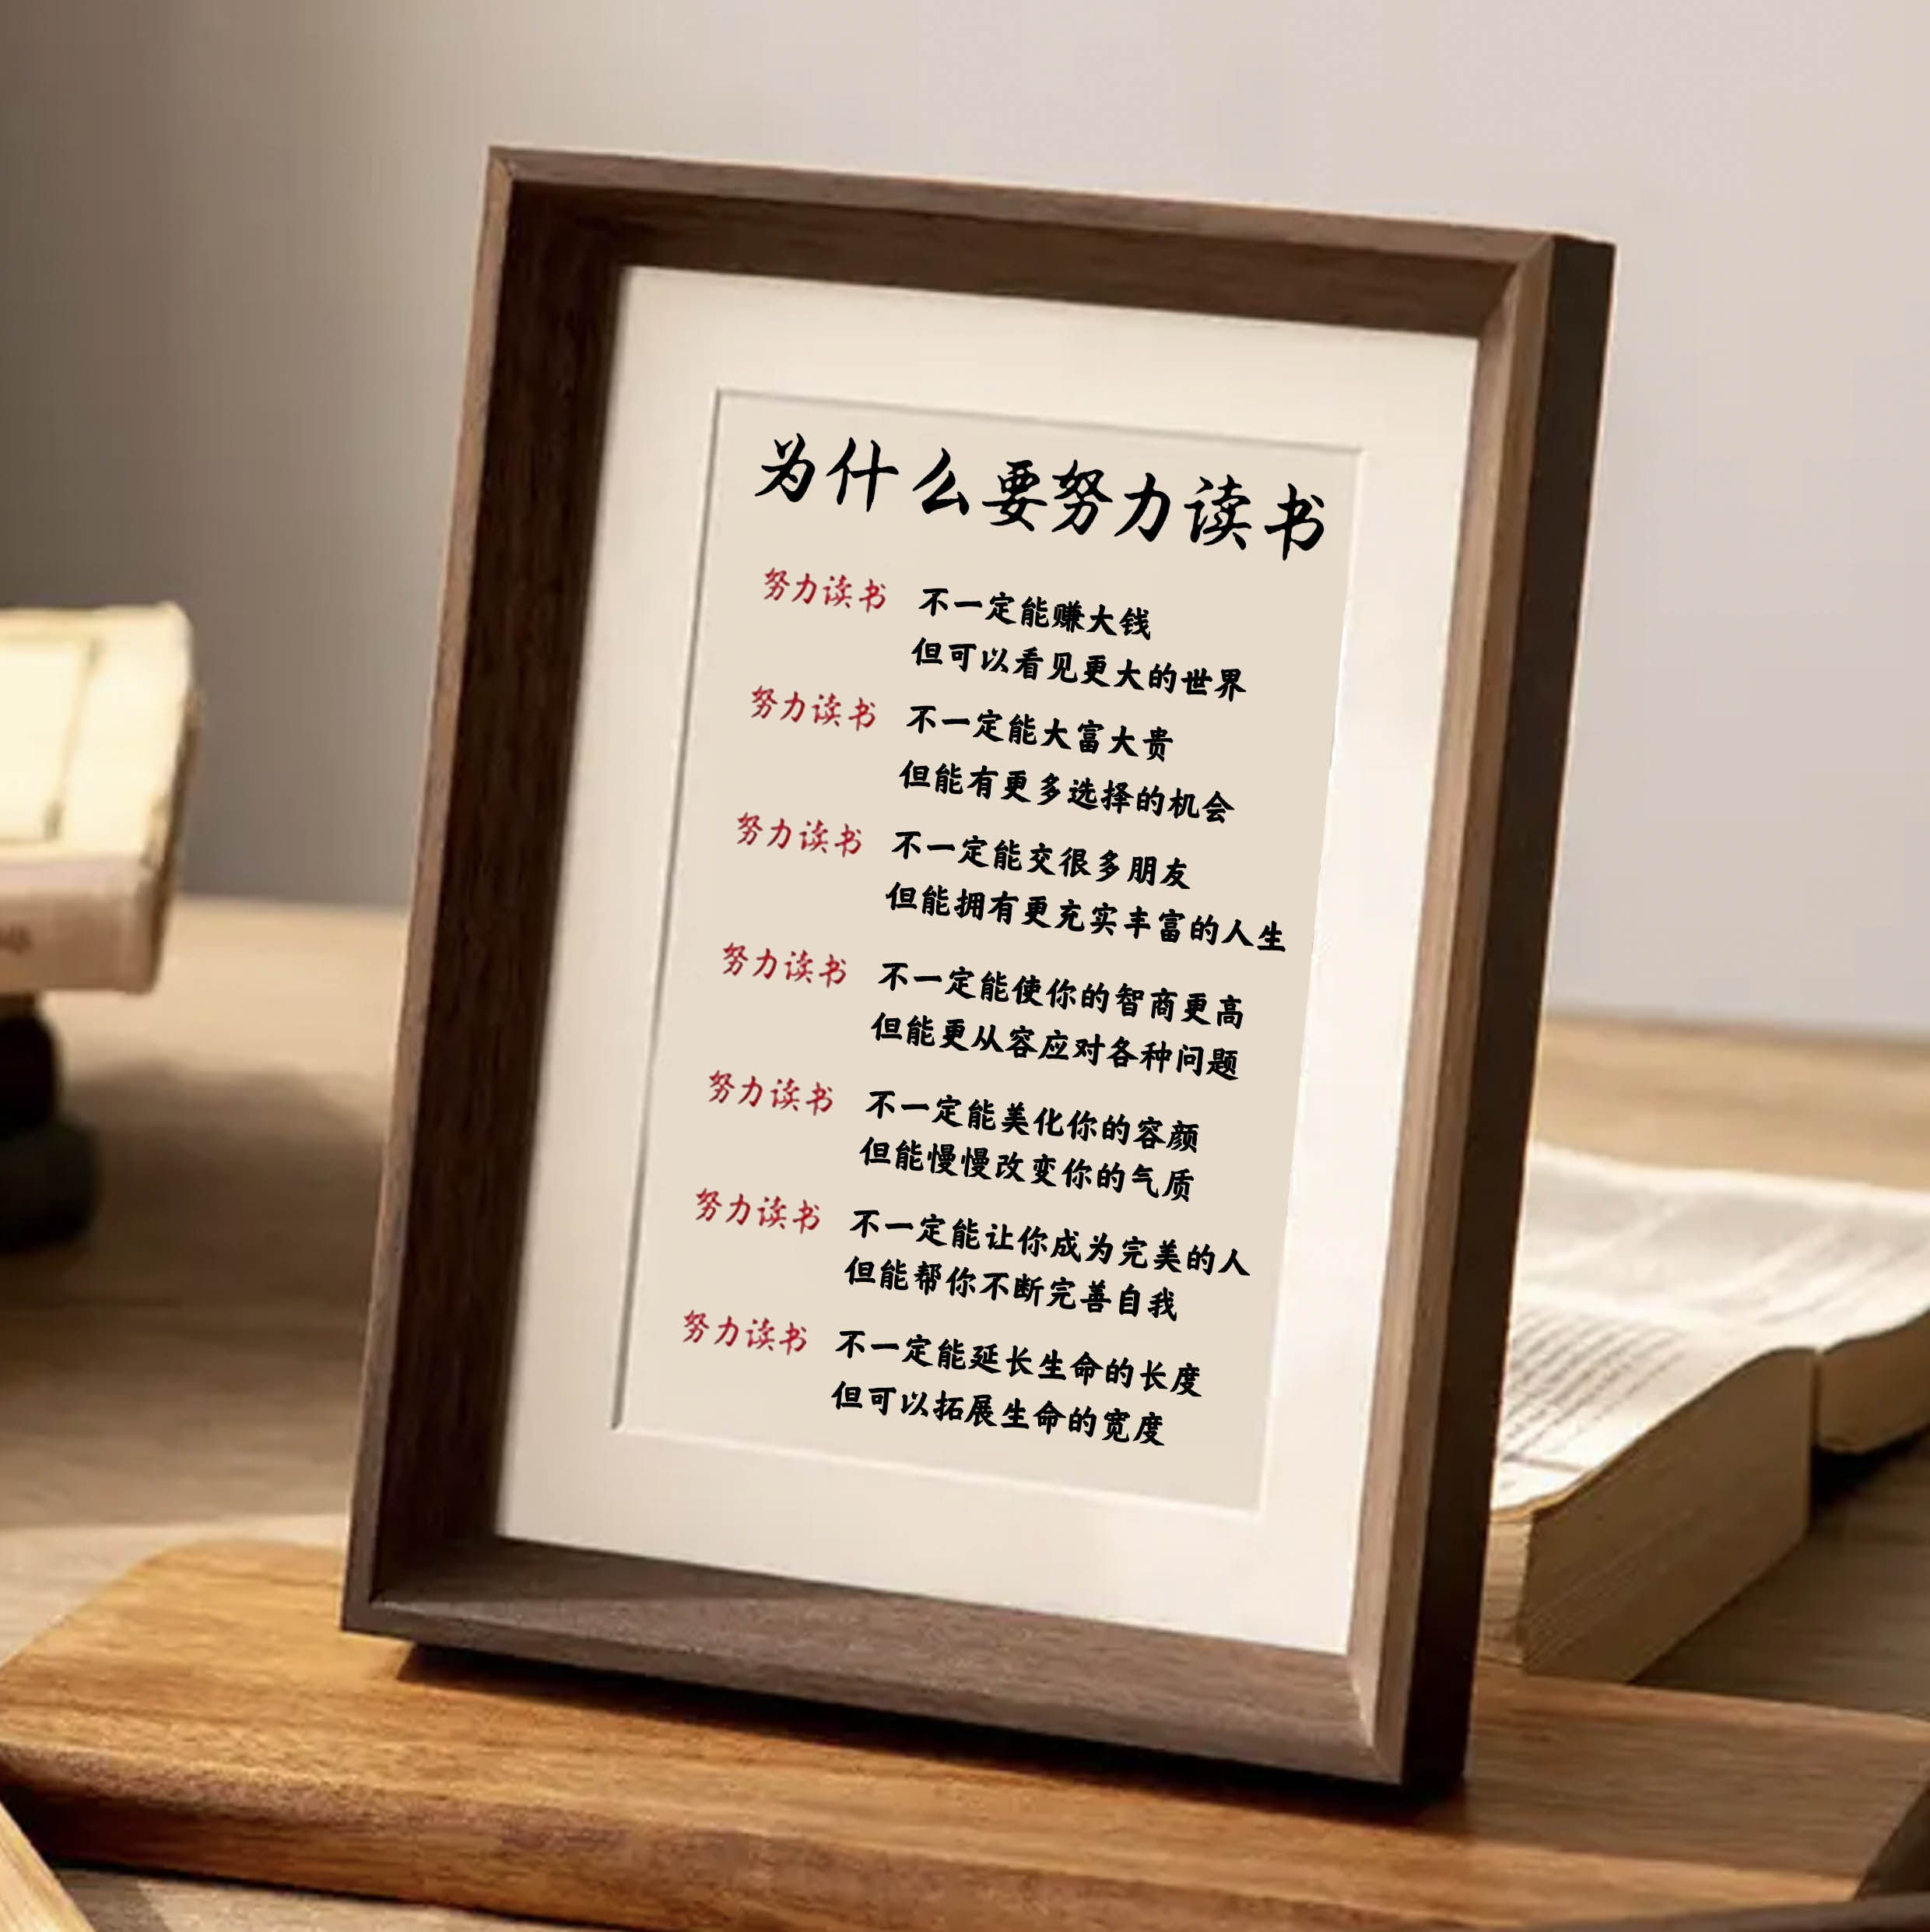 为什么要努力读书
努力读书 不一定能赚大钱
但可以看见更大的世界
努力读书 不一定能大富大贵
但能有更多选择的机会
努力读书 不一定能交很多朋友
但能拥有更充实丰富的人生
努力读书 不一定能使你的智商更高
但能更从容应对各种问题
努力读书 不一定能美化你的容颜
但能慢慢改变你的气质
努力读书 不一定能让你成为完美的人
但能帮你不断完善自我
努力读书 不一定能延长生命的长度
但可以拓展生命的宽度